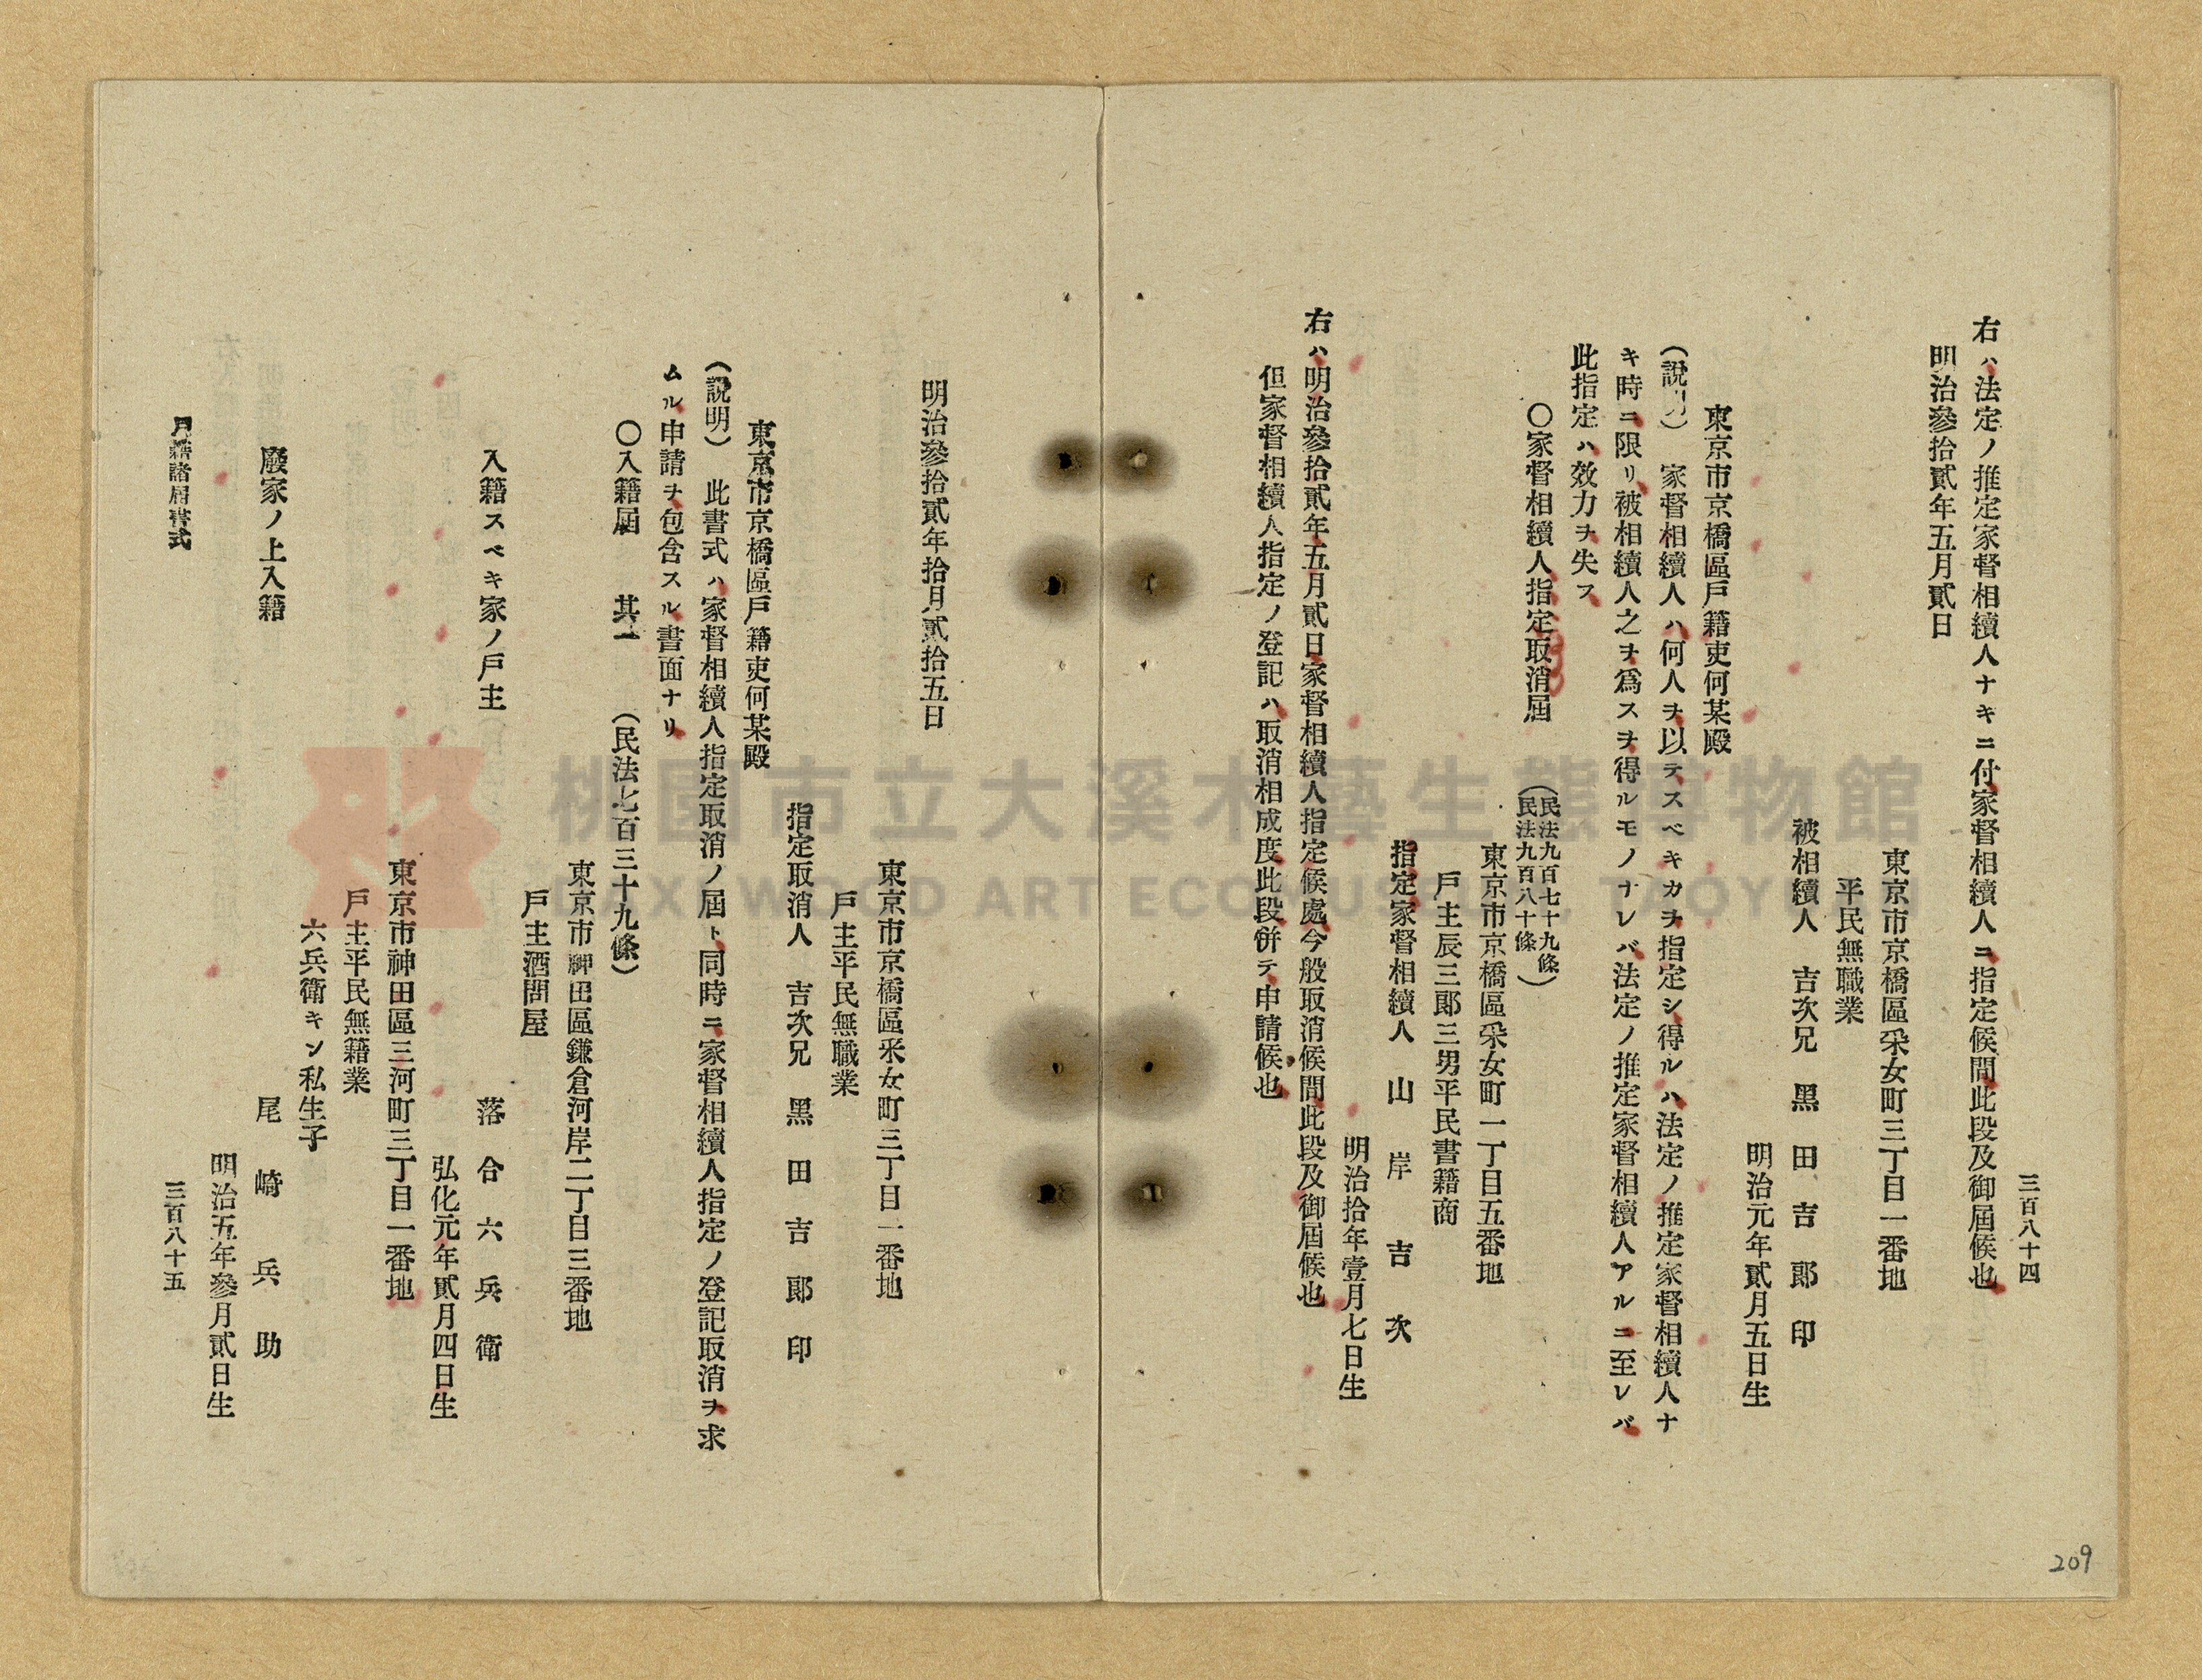 三百八十四
右ハ法定ノ推定家督相續人ナキニ付家督相續人ニ指定候間此段及御屆候也
明治參拾貳年五月貳日
東京市京橋區采女町三丁目一番地
平民無職業
被相續人 吉次兄 黑田吉郎印
明治元年貳月五日生
東京市京橋區戶籍吏何某殿
(說明) 家督相續人ハ何人ヲ以テスベキカヲ指定シ得ルハ法定ノ推定家督相續人ナ
キ時ニ限リ被相續人之ヲ爲スヲ得ルモノナレバ法定ノ推定家督相續人アルニ至レバ
此指定ハ效力ヲ失フ
〇家督相續人指定取消屆 (民法九百七十九條
民法九百八十條)
東京市京橋區采女町一丁目五番地
戶主辰三郎三男平民書籍商
指定家督相續人 山岸吉次
明治拾年壹月七日生
右ハ明治參拾貳年五月貳日家督相續人指定候處今般取消候間此段及御屆候也
但家督相續人指定ノ登記ハ取消相成度此段併テ申請候也
明治參拾貳年拾月貳拾五日
東京市京橋區采女町三丁目一番地
戶主平民無職業
指定取消人 吉次兄 黑田吉郎印
東京市京橋區戶籍吏何某殿
(說明) 此書式ハ家督相續人指定取消ノ屆ト同時ニ家督相續人指定ノ登記取消ヲ求
ムル申請ヲ包含スル書面ナリ
〇入籍屆 其一 (民法七百三十九條)
東京市神田區鎌倉河岸二丁目三番地
戶主酒問屋
入籍スベキ家ノ戶主 落合六兵衛
弘化元年貳月四日生
東京市神田區三河町三丁目一番地
戶主平民無籍業
六兵衛キン私生子
廢家ノ上入籍 尾崎兵助
明治五年參月貳日生
戶籍諸屆書式
三百八十五
209
桃園市立大溪木藝生態博物館
DAXI WOOD ART ECOMUSEUM, TAOYUAN